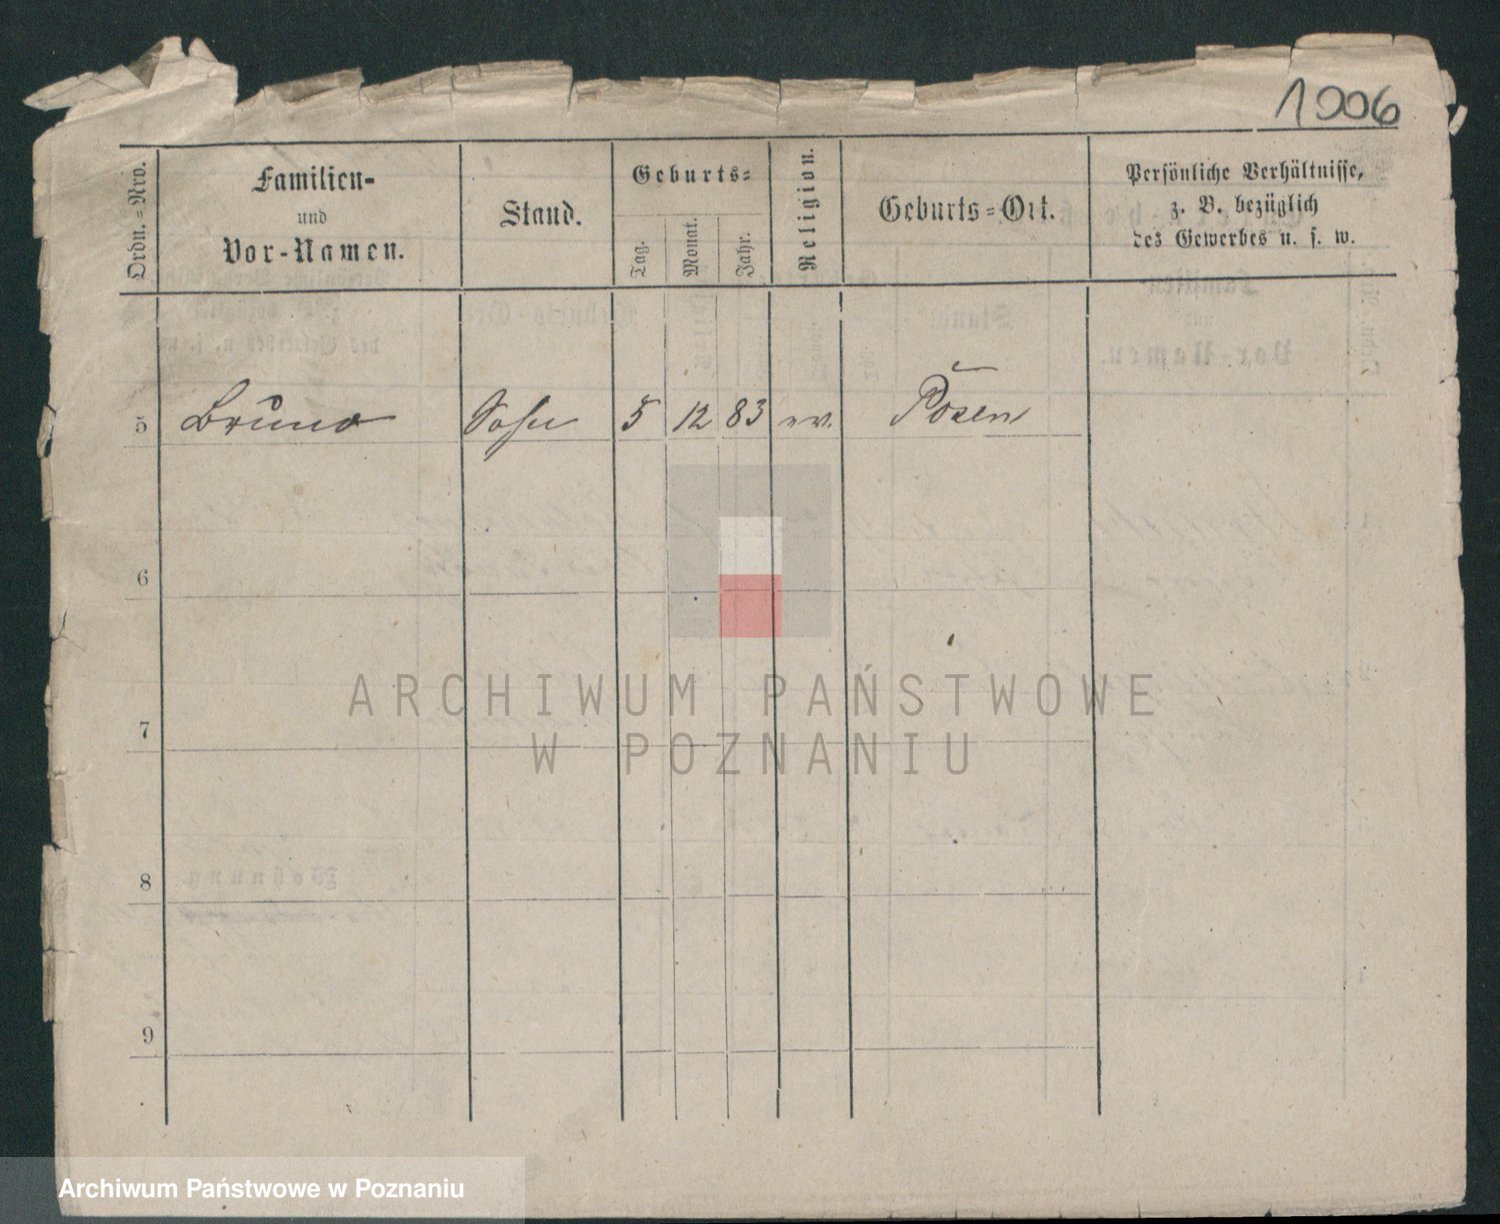 1006
Ordn.=Nro.
Familien-
und
Vor-Namen.
Stand.
Geburts=
Tag.
Monat.
Jahr.
Religion.
Geburts=Ort.
Persönliche Verhältnisse,
z. B. bezüglich
des Gewerbes u. s. w.
5 Bruno Sohn 5 12 83 ev. Posen
6
ARCHIWUM PAŃSTWOWE
7
W POZNANIU
8
9
Archiwum Państwowe w Poznaniu